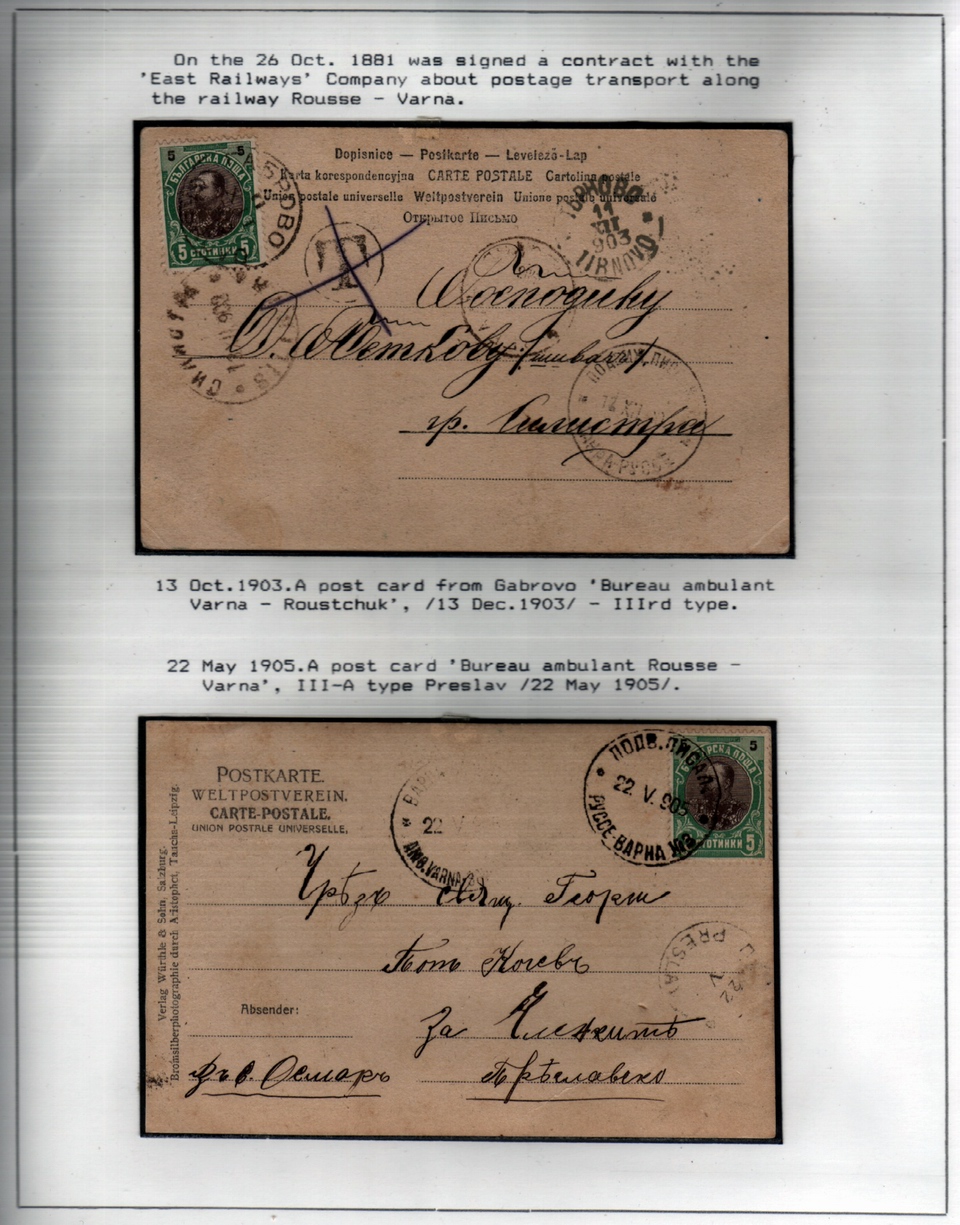 On the 26 Oct. 1881 was signed a contract with the
'East Railways' Company about postage transport along
the railway Rousse - Varna.
5 5
БЪЛГАРСКА ПОЩА
5 СТОТИНКИ 5
ГАБРОВО
Dopisnice — Postkarte — Levelező-Lap
Karta korespondencyjna CARTE POSTALE Cartolina postale
Union postale universelle Weltpostverein Unione postale universale
Открытое Письмо
T
ТЪРНОВО
11
XII
903
TIRNOVO
Господину
гр. Силистра
13 Oct.1903.A post card from Gabrovo 'Bureau ambulant
Varna - Roustchuk', /13 Dec.1903/ - IIIrd type.
22 May 1905.A post card 'Bureau ambulant Rousse -
Varna', III-A type Preslav /22 May 1905/.
POSTKARTE.
WELTPOSTVEREIN.
CARTE-POSTALE.
UNION POSTALE UNIVERSELLE.
Verlag Würthle & Sohn, Salzburg.
Bromsilberphotographie durch Aristophot, Taucha-Leipzig.
22 V
AMB.VARNA
ПОДВ.ПИСАЛ.
22. V. 905
РУССЕ-ВАРНА №3
5
СТОТИНКИ 5
PRESLA
22
V
Чрѣзъ свящ. Георги
Попъ Колевъ
Absender:
За
въ с. Осмаръ
Прѣславско